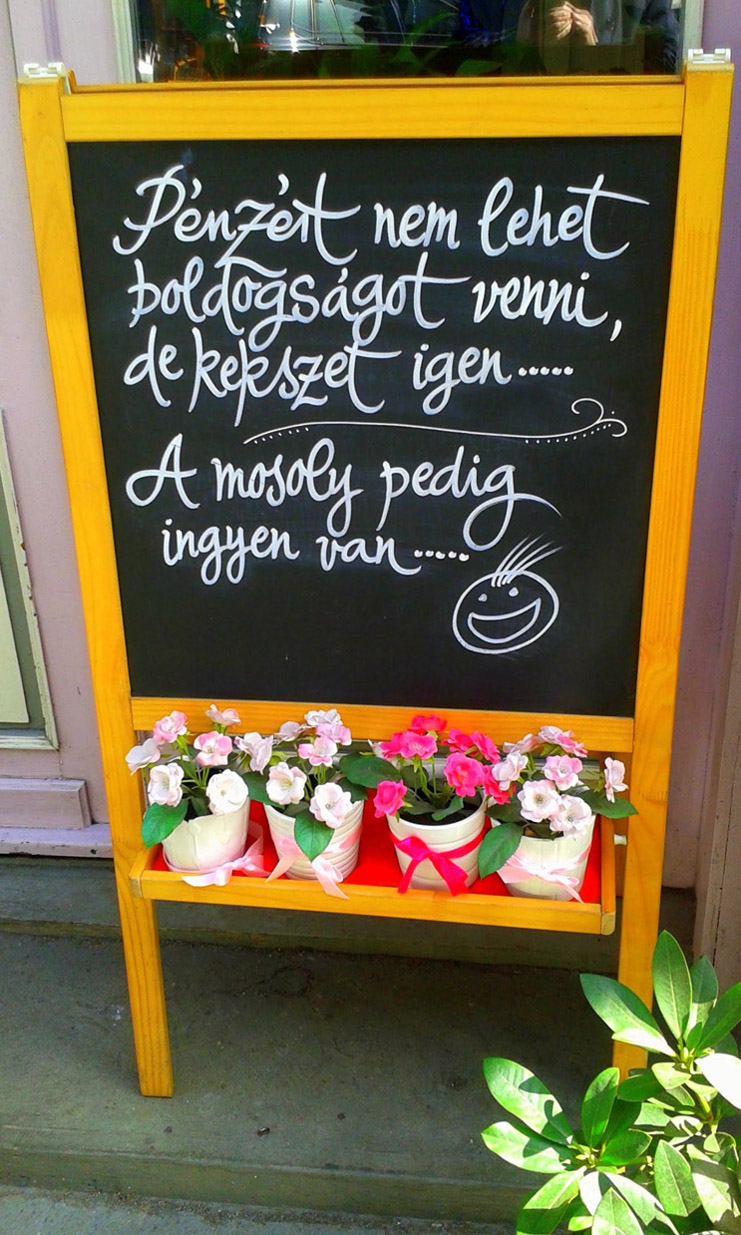 Pénzért nem lehet
boldogságot venni,
de kekszet igen.....
A mosoly pedig
ingyen van.....